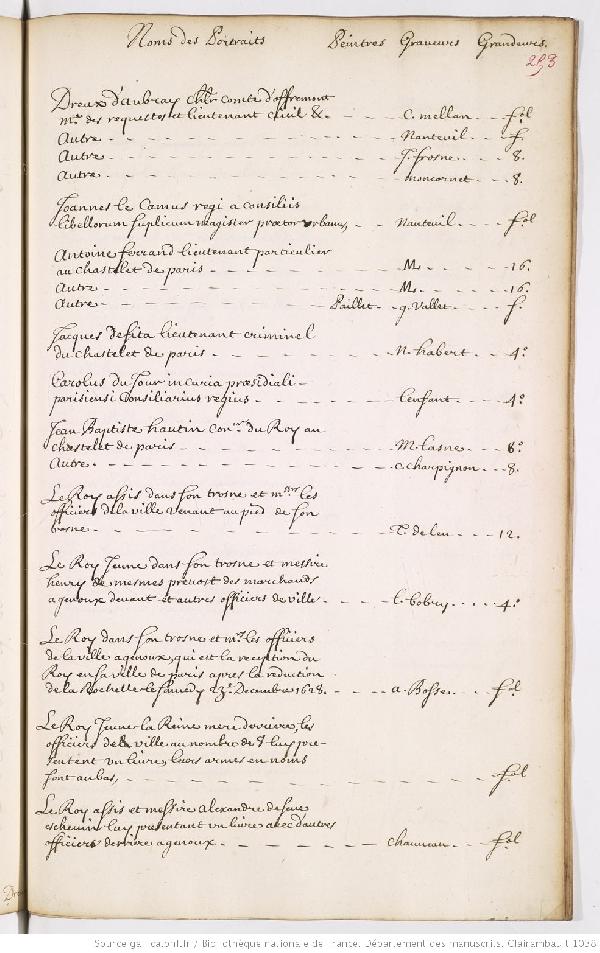 Noms des Portraits Peintres Graveurs Grandeurs.
253
Dreux d'aubray chlr comte d'offremont
mre des requestes et lieutenant civil &. - - - c. mellan - - fol
Autre - - - Nanteuil - - f.
Autre - - - J. frosne - - 8.
Autre - - - moncornet - - 8.
Joannes le Camus regi a consiliis
libellorum suplicum magister prœtor urbanus, - - Nanteuil - - fol
Antoine ferrand lieutenant particulier
au chastelet de paris - - - M. - - 16.
Autre - - - M. - - 16.
Autre - - - Paillet - g. Vallet - - f.
Jacques Defita lieutenant criminel
du chastelet de paris - - - N. habert - - 4°
Carolus du Jour in curia præsidiali -
parisiensi Consiliarius regius - - - Lenfant - - 4°
Jean Baptiste hautin coner du Roy au
chastelet de paris - - - M. Lasne - - 8°
Autre - - - c. charpignon - - 8.
Le Roy assis dans son trosne et mrs les
officiers de la ville venant au pied de son
trosne - - - T. de leu - - 12.
Le Roy Jeune dans son trosne et messire
henry de mesmes prevost des marchands
a genoux devant et autres officiers de ville - - - L. bobry - - 4°
Le Roy dans son trosne et mrs les officiers
de la ville a genoux, qui est la reception du
Roy en sa ville de paris apres la reduction
de la Rochelle le samedy 23e Decembre 1628. - - a. Bosse - - fol
Le Roy Jeune la Reine mere derriere, les
officiers de la ville au nombre de 8 luy pre-
sentent un livre, leurs armes en noms
sont au bas, - - - fol
Le Roy assis et messire alexandre de seve
eschevin luy presentant un livre avec d'autres
officiers derriere a genoux - - - chauveau - - fol
Source gallica.bnf.fr / Bibliothèque nationale de France. Département des manuscrits. Clairambault 1038